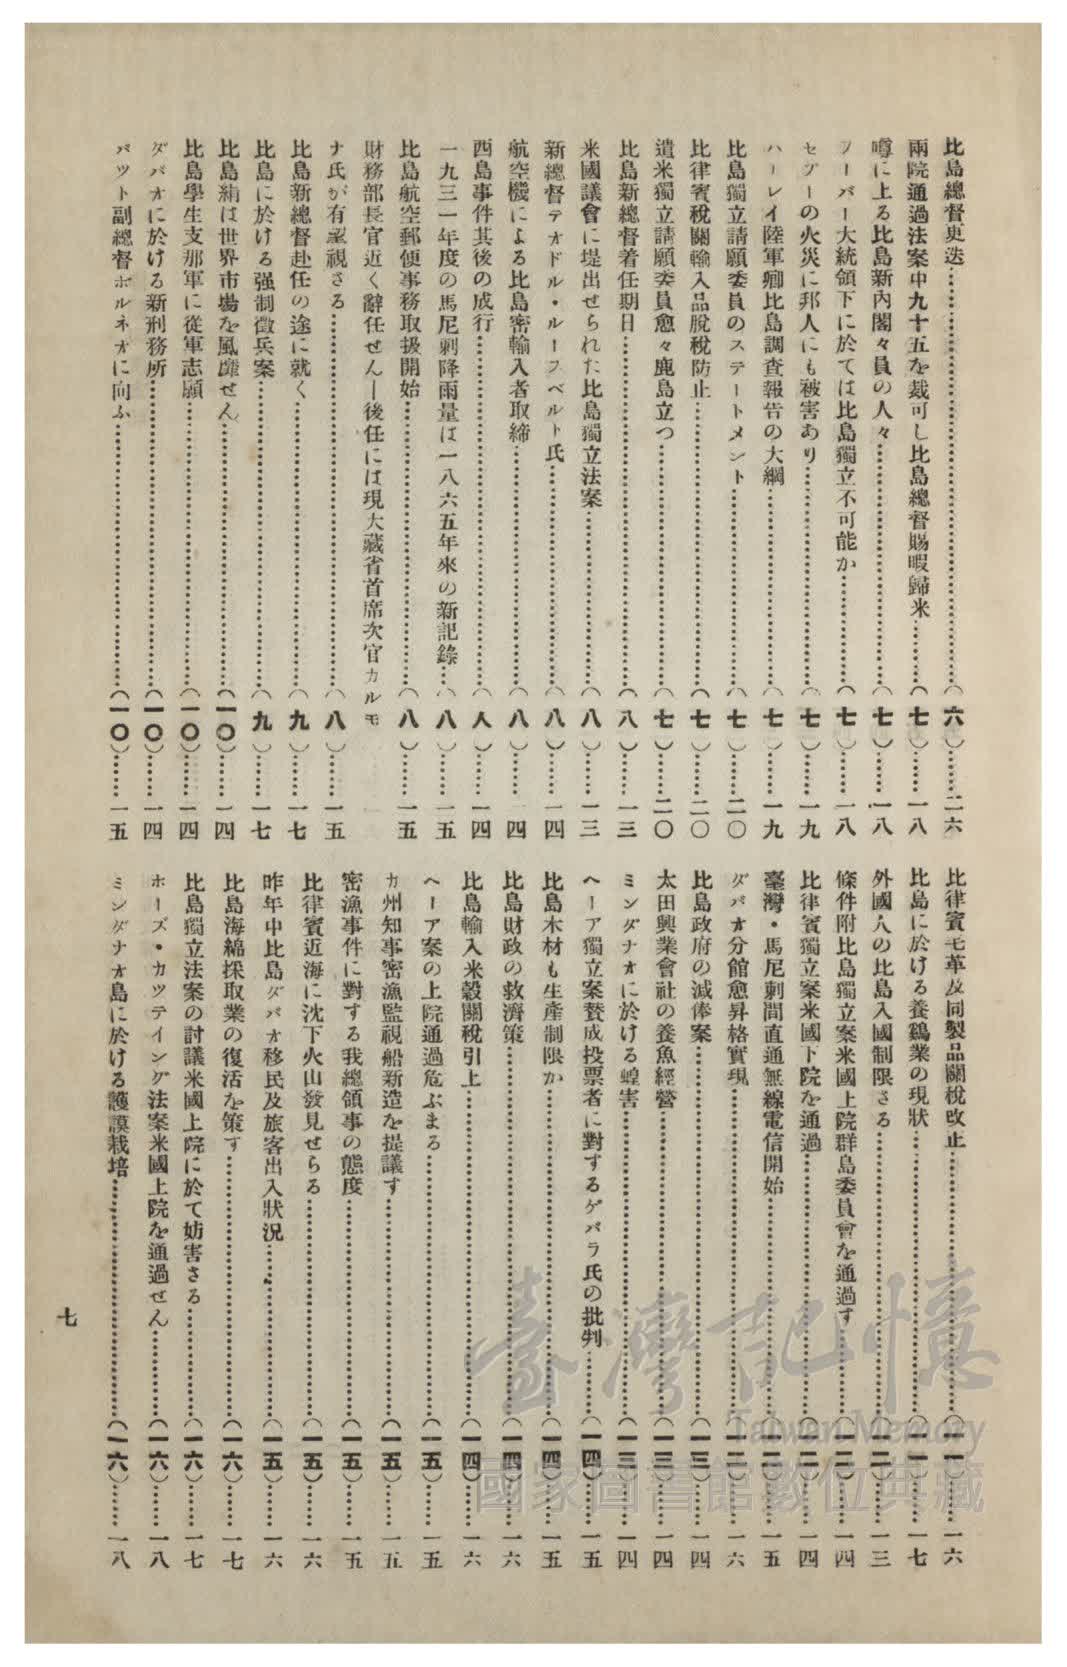 比島總督更迭……(六)……二六
兩院通過法案中九十五を裁可し比島總督賜暇歸米……(七)……一八
噂に上る比島新內閣々員の人々……(七)……一八
フーバー大統領下に於ては比島獨立不可能か……(七)……一八
セブーの火災に邦人にも被害あり……(七)……一九
ハーレイ陸軍卿比島調查報告の大綱……(七)……一九
比島獨立請願委員のステートメント……(七)……二〇
比律賓稅關輸入品脫稅防止……(七)……二〇
遣米獨立請願委員愈々鹿島立つ……(七)……二〇
比島新總督着任期日……(八)……一三
米國議會に提出せられた比島獨立法案……(八)……一三
新總督テオドル・ルーズベルト氏……(八)……一四
航空機による比島密輸入者取締……(八)……一四
西島事件其後の成行……(八)……一四
一九三一年度の馬尼剌降雨量は一八六五年來の新記錄……(八)……一五
比島航空郵便事務取扱開始……(八)……一五
財務部長官近く辭任せん―後任には現大藏省首席次官カルモ
ナ氏が有望視さる……(八)……一五
比島新總督赴任の途に就く……(九)……一七
比島に於ける强制徵兵案……(九)……一七
比島絹は世界市場を風靡せん……(一〇)……一四
比島學生支那軍に從軍志願……(一〇)……一四
ダバオに於ける新刑務所……(一〇)……一四
バット副總督ボルネオに向ふ……(一〇)……一五
比律賓毛革及同製品關稅改正……(一一)……一六
比島に於ける養鷄業の現狀……(一一)……一七
外國人の比島入國制限さる……(一二)……一三
條件附比島獨立案米國上院群島委員會を通過す……(一二)……一四
比律賓獨立案米國下院を通過……(一二)……一四
臺灣・馬尼剌間直通無線電信開始……(一二)……一五
ダバオ分館愈昇格實現……(一二)……一六
比島政府の減俸案……(一三)……一四
太田興業會社の養魚經營……(一三)……一四
ミンダナオに於ける蝗害……(一三)……一四
ヘーア獨立案贊成投票者に對するゲバラ氏の批判……(一四)……一五
比島木材も生產制限か……(一四)……一五
比島財政の救濟策……(一四)……一六
比島輸入米穀關稅引上……(一四)……一六
ヘーア案の上院通過危ぶまる……(一五)……一五
カ州知事密漁監視船新造を提議す……(一五)……一五
密漁事件に對する我總領事の態度……(一五)……一五
比律賓近海に沈下火山發見せらる……(一五)……一六
昨年中比島ダバオ移民及旅客出入狀況……(一五)……一六
比島海綿採取業の復活を策す……(一六)……一七
比島獨立法案の討議米國上院に於て妨害さる……(一六)……一七
ホーズ・カッテイング法案米國上院を通過せん……(一六)……一八
ミンダナオ島に於ける護謨栽培……(一六)……一八
七
臺灣記憶
Taiwan Memory
國家圖書館數位典藏